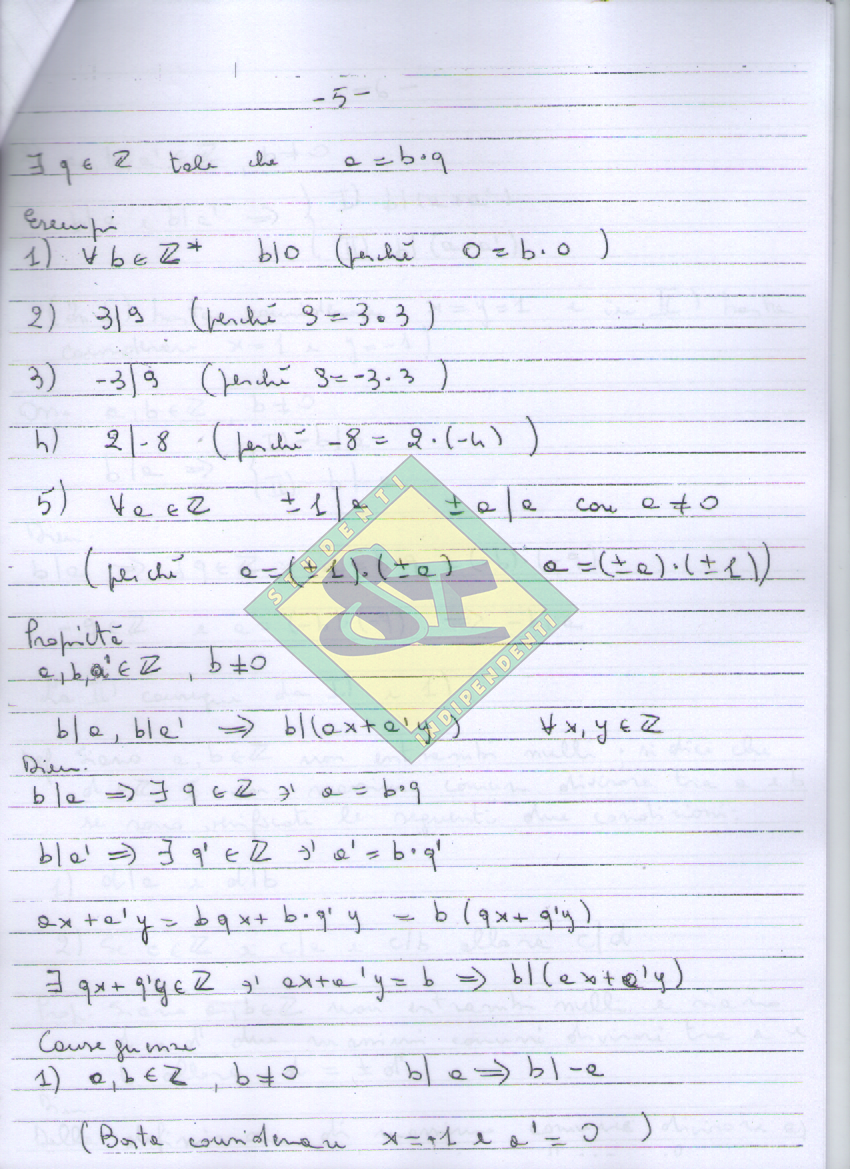 -5-
∃ q ∈ ℤ tale che a = b·q
Esempi
1) ∀ b ∈ ℤ* b|0 (perché 0 = b·0)
2) 3|9 (perché 9 = 3·3)
3) -3|9 (perché 9 = -3·3)
4) 2|-8 (perché -8 = 2·(-4))
5) ∀ a ∈ ℤ ±1|a ±a|a con a ≠ 0
(perché a = (±1)·(±a) a = (±a)·(±1))
Propietà
a,b,a' ∈ ℤ, b ≠ 0
b|a, b|a' ⟹ b|(ax+a'y) ∀ x,y ∈ ℤ
Dim.
b|a ⟹ ∃ q ∈ ℤ ∋' a = b·q
b|a' ⟹ ∃ q' ∈ ℤ ∋' a' = b·q'
ax+a'y = bqx + b·q'y = b(qx+q'y)
∃ qx+q'y ∈ ℤ ∋' ax+a'y = b ⟹ b|(ax+a'y)
Conseguenze
1) a,b ∈ ℤ, b ≠ 0 b|a ⟹ b|-a
(Basta considerare x=-1 e a'=0)
STUDENTI
SI
INDIPENDENTI